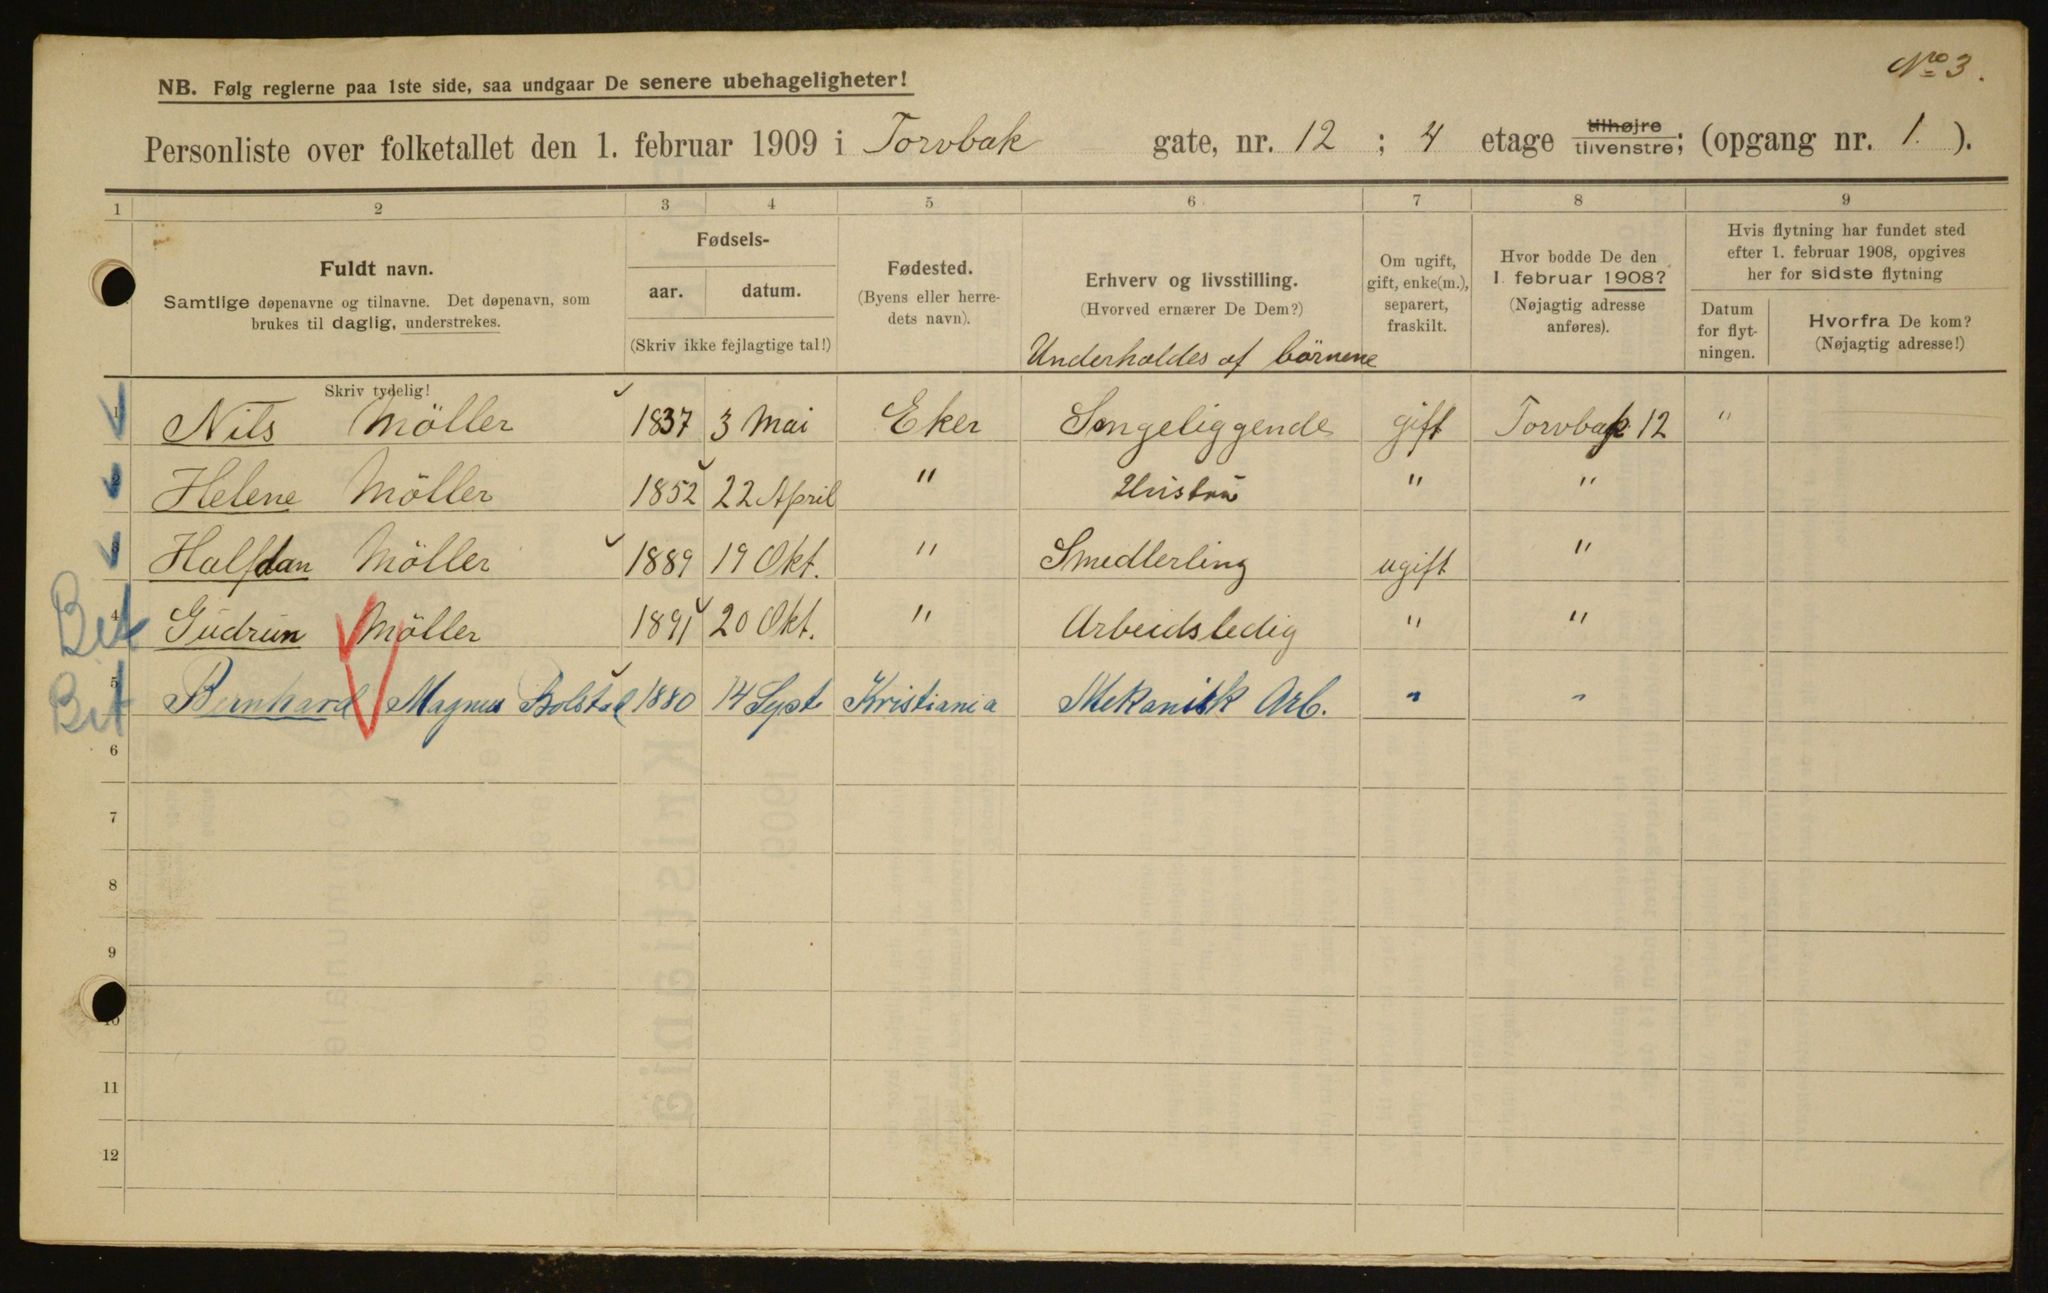 No 3.
NB. Følg reglerne paa 1ste side, saa undgaar De senere ubehageligheter!
Personliste over folketallet den 1. februar 1909 i Torvbak gate, nr. 12 ; 4 etage tilhøjre tilvenstre; (opgang nr. 1. ).
1 2 3 4 5 6 7 8 9
Fuldt navn.
Samtlige døpenavne og tilnavne. Det døpenavn, som
brukes til daglig, understrekes.
Skriv tydelig!
Fødsels-
aar. datum.
(Skriv ikke fejlagtige tal!)
Fødested.
(Byens eller herre-
dets navn).
Erhverv og livsstilling.
(Hvorved ernærer De Dem?)
Underholdes af börnene
Om ugift,
gift, enke(m.),
separert,
fraskilt.
Hvor bodde De den
1. februar 1908?
(Nøjagtig adresse
anføres).
Hvis flytning har fundet sted
efter 1. februar 1908, opgives
her for sidste flytning
Datum
for flyt-
ningen.
Hvorfra De kom?
(Nøjagtig adresse!)
1 Nils Möller 1837 3 Mai Eker Sengeliggende gift Torvbak 12 "
2 Helene Möller 1852 22 April " Hustru " "
3 Halfdan Möller 1889 19 Okt. " Smedlerling ugift "
Bet 4 Gudrun Möller 1891 20 Okt. " Arbeidsledig " "
Bet 5 Bernhard Magnus Bolstad 1880 14 Sept Kristiania Mekanisk Arb. " "
6
7
8
9
10
11
12